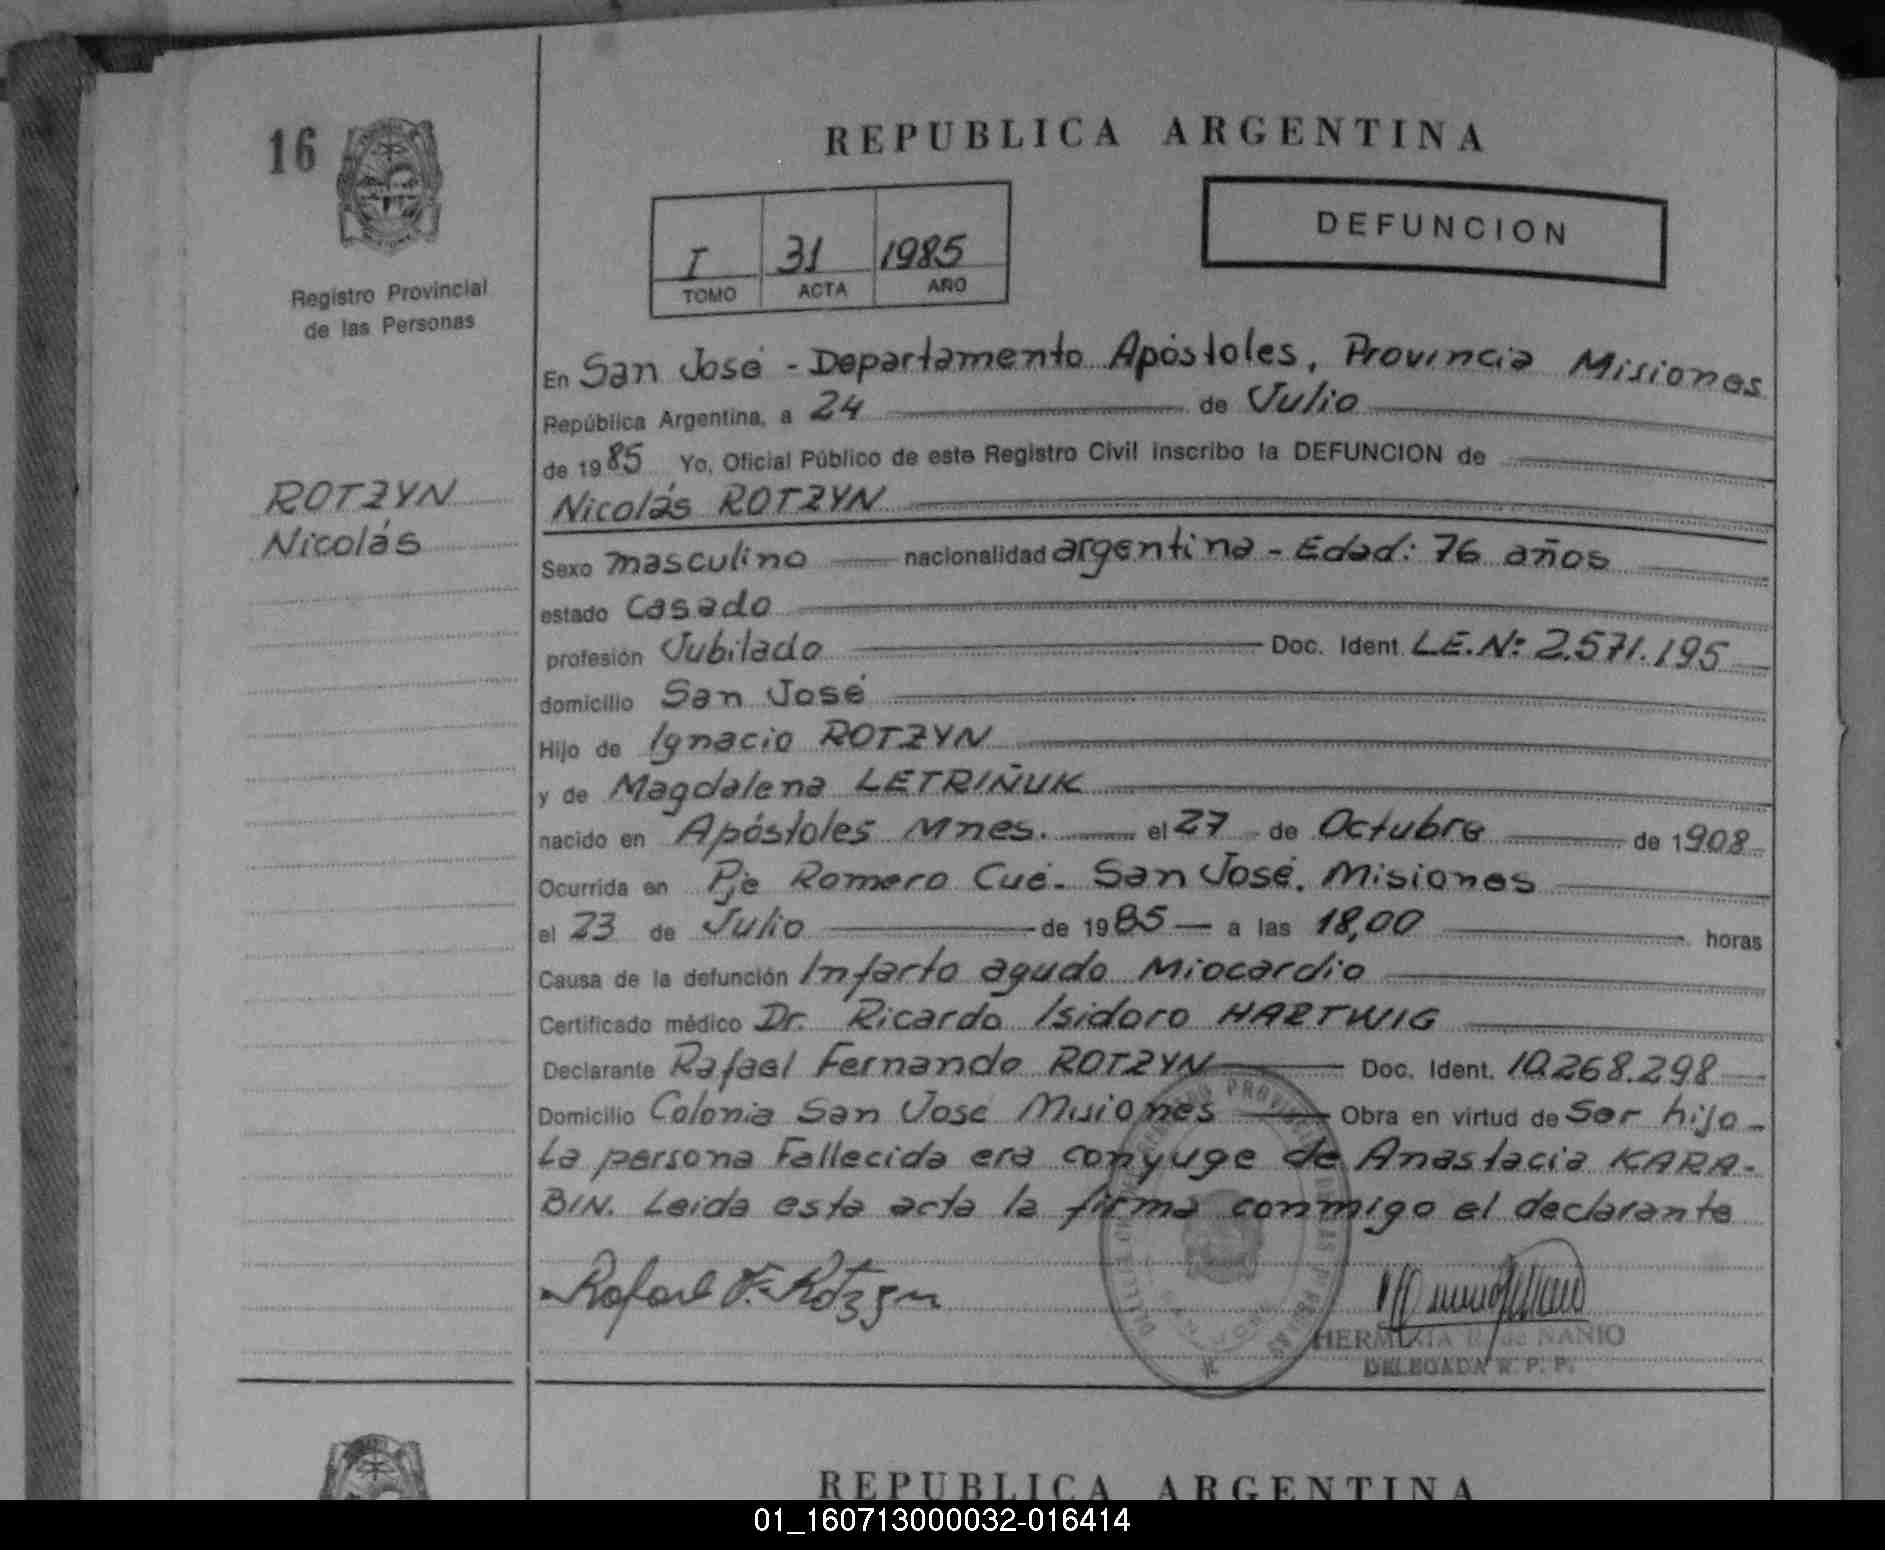 16
REPUBLICA ARGENTINA
I 31 1985
TOMO ACTA AÑO
DEFUNCION
Registro Provincial
de las Personas
ROTZYN
Nicolás
En San José - Departamento Apóstoles, Provincia Misiones
República Argentina, a 24 de Julio
de 1985 Yo, Oficial Público de este Registro Civil inscribo la DEFUNCION de
Nicolás ROTZYN
Sexo masculino nacionalidad argentina - Edad: 76 años
estado Casado
profesión Jubilado Doc. Ident. L.E. Nº 2.571.195
domicilio San José
Hijo de Ignacio ROTZYN
y de Magdalena LETRIÑUK
nacido en Apóstoles Mnes. el 27 de Octubre de 1908
Ocurrida en Pje Romero Cué. San José. Misiones
el 23 de Julio de 1985 a las 18,00 horas
Causa de la defunción Infarto agudo Miocardio
Certificado médico Dr. Ricardo Isidoro HARTWIG
Declarante Rafael Fernando ROTZYN Doc. Ident. 10.268.298
Domicilio Colonia San José Misiones Obra en virtud de Ser hijo-
La persona Fallecida era conyuge de Anastacia KARA-
BIN. Leida esta acta la firma conmigo el declarante
Rafael F. Rotzyn
DE NANIO
DELEGADA R. P. P.
REPUBLICA ARGENTINA
01_160713000032-016414